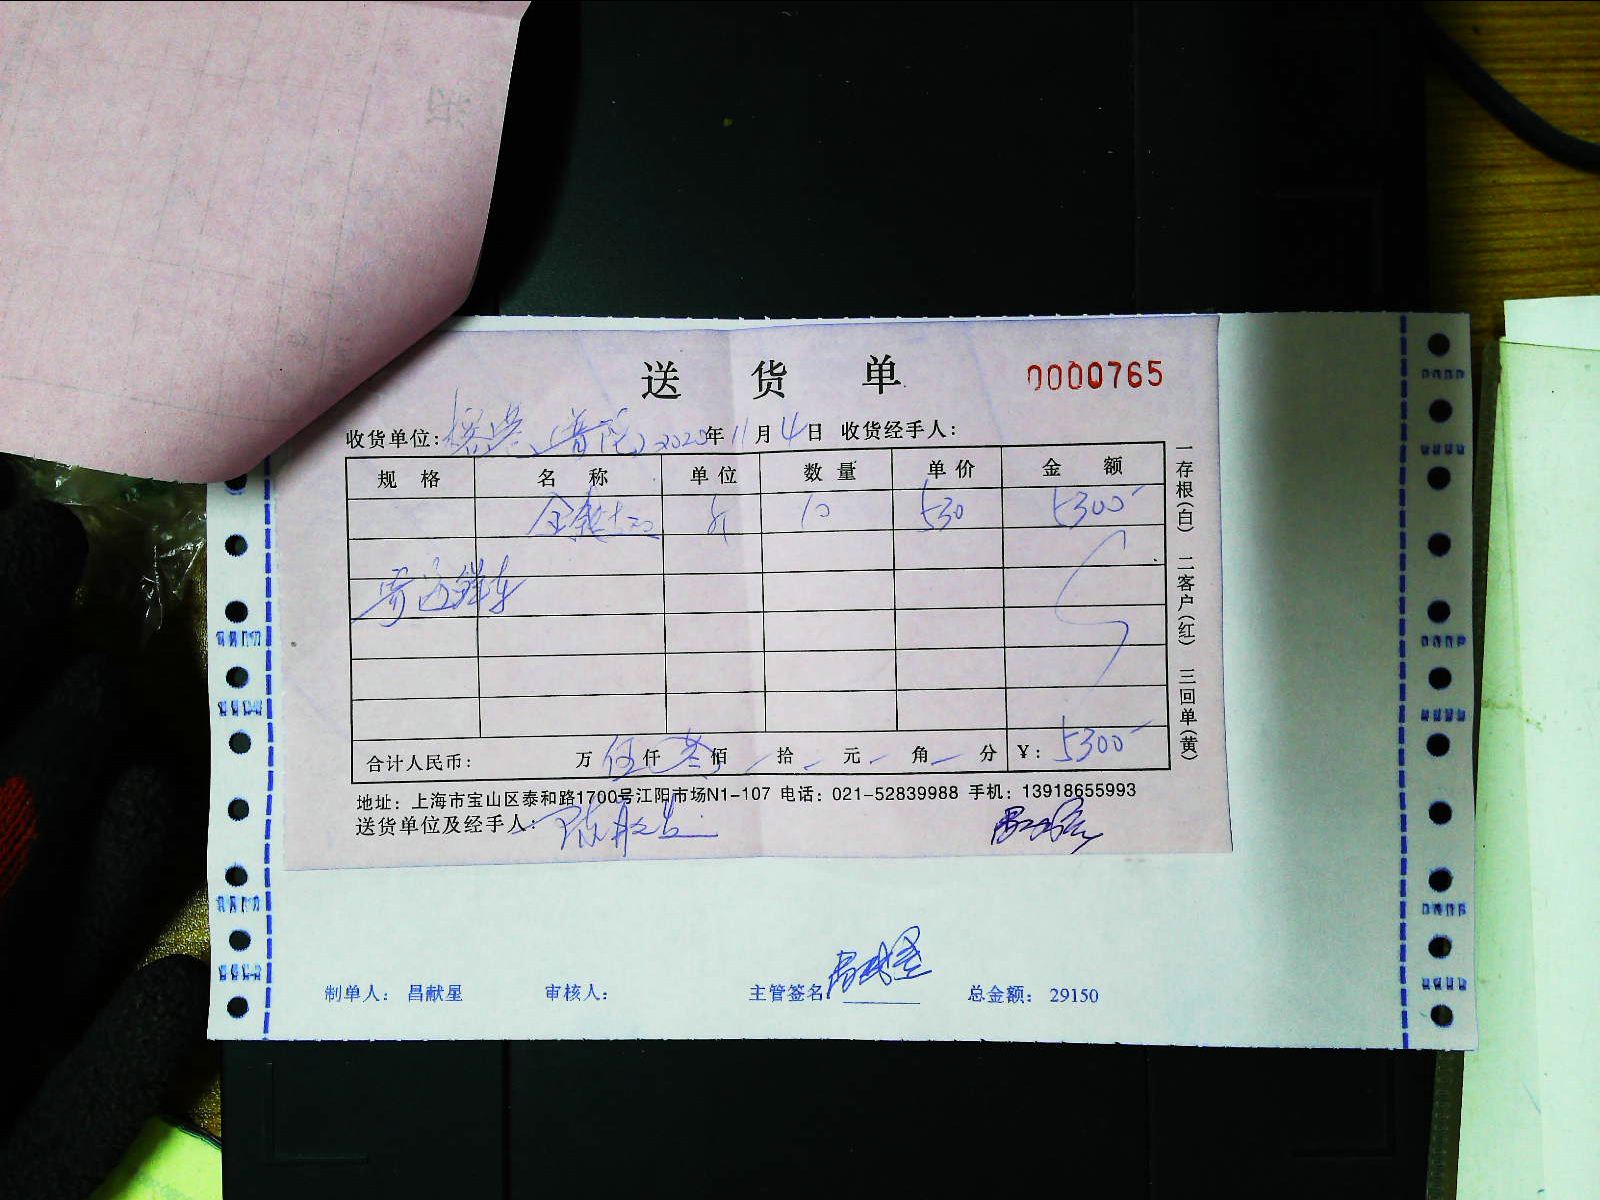 送货单 0000765
收货单位: (普陀) 2020年11月4日 收货经手人:
规格 名称 单位 数量 单价 金额
斤 10 530 5300
合计人民币: 万伍仟叁佰 拾 元 角 分 ¥: 5300
地址: 上海市宝山区泰和路1700号江阳市场N1-107 电话: 021-52839988 手机: 13918655993
送货单位及经手人:
一存根(白) 二客户(红) 三回单(黄)
制单人: 昌献星 审核人: 主管签名 昌献星 总金额: 29150